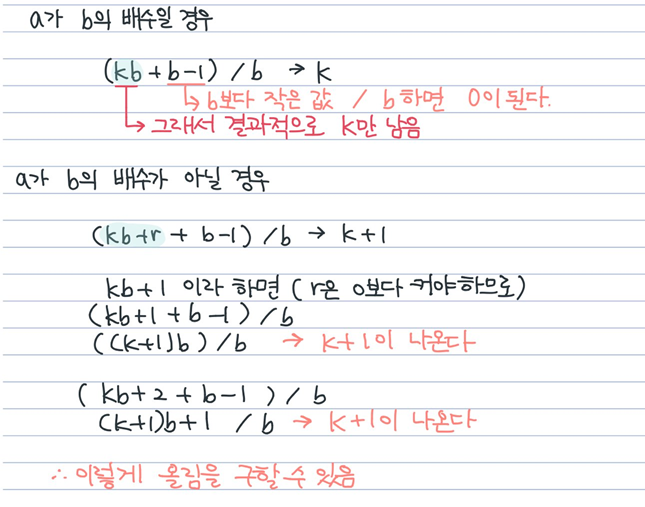 a가 b의 배수일 경우
(kb + b-1) / b → k
↳ b보다 작은 값 / b 하면 0이 된다.
↳ 그래서 결과적으로 k만 남음
a가 b의 배수가 아닐 경우
(kb+r + b-1) / b → k+1
kb+1 이라 하면 (r은 0보다 커야하므로)
(kb+1 + b-1) / b
((k+1)b) / b → k+1이 나온다
( kb+2 + b-1 ) / b
(k+1)b+1 / b → k+1이 나온다
∴ 이렇게 올림을 구할 수 있음